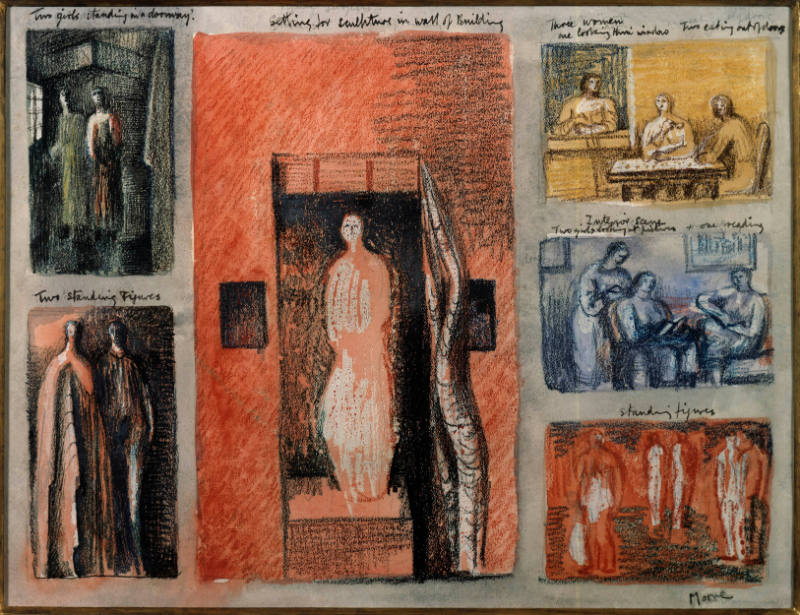 Two girls standing in a doorway.
Setting for sculpture in wall of Building
Three women
one looking thro window Two eating out of doors
Interior Scene
Two girls looking at pictures + one reading
Two Standing Figures
Standing figures
Moore